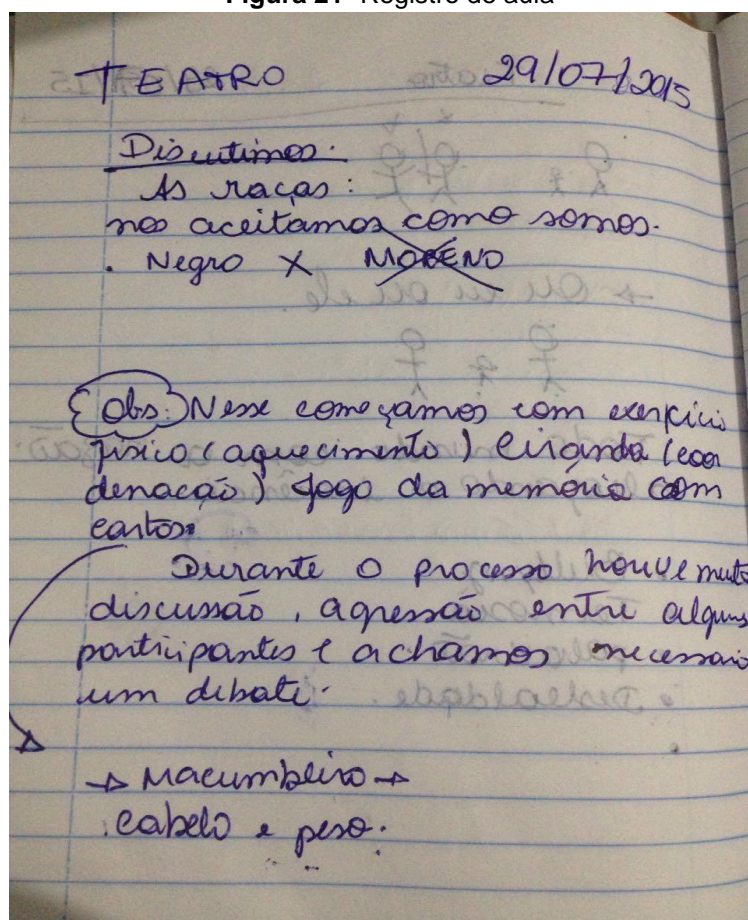 Figura 21- Registro de aula
TEATRO 29/07/2015
Discutimos:
As raças:
nos aceitamos como somos.
. Negro X MORENO
Obs: Nesse começamos com exercício
físico (aquecimento) Ciranda (coor
denacão) Jogo da memória com
cartos.
Durante o processo houve muita
discussão, agressão entre alguns
participantes e achamos necessario
um debate.
→ Macumbeiro →
. Cabelo e peso.